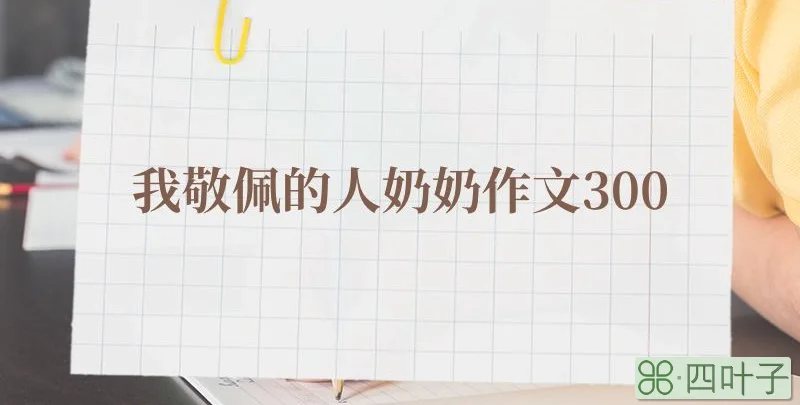 我敬佩的人奶奶作文300
⌘·四叶子